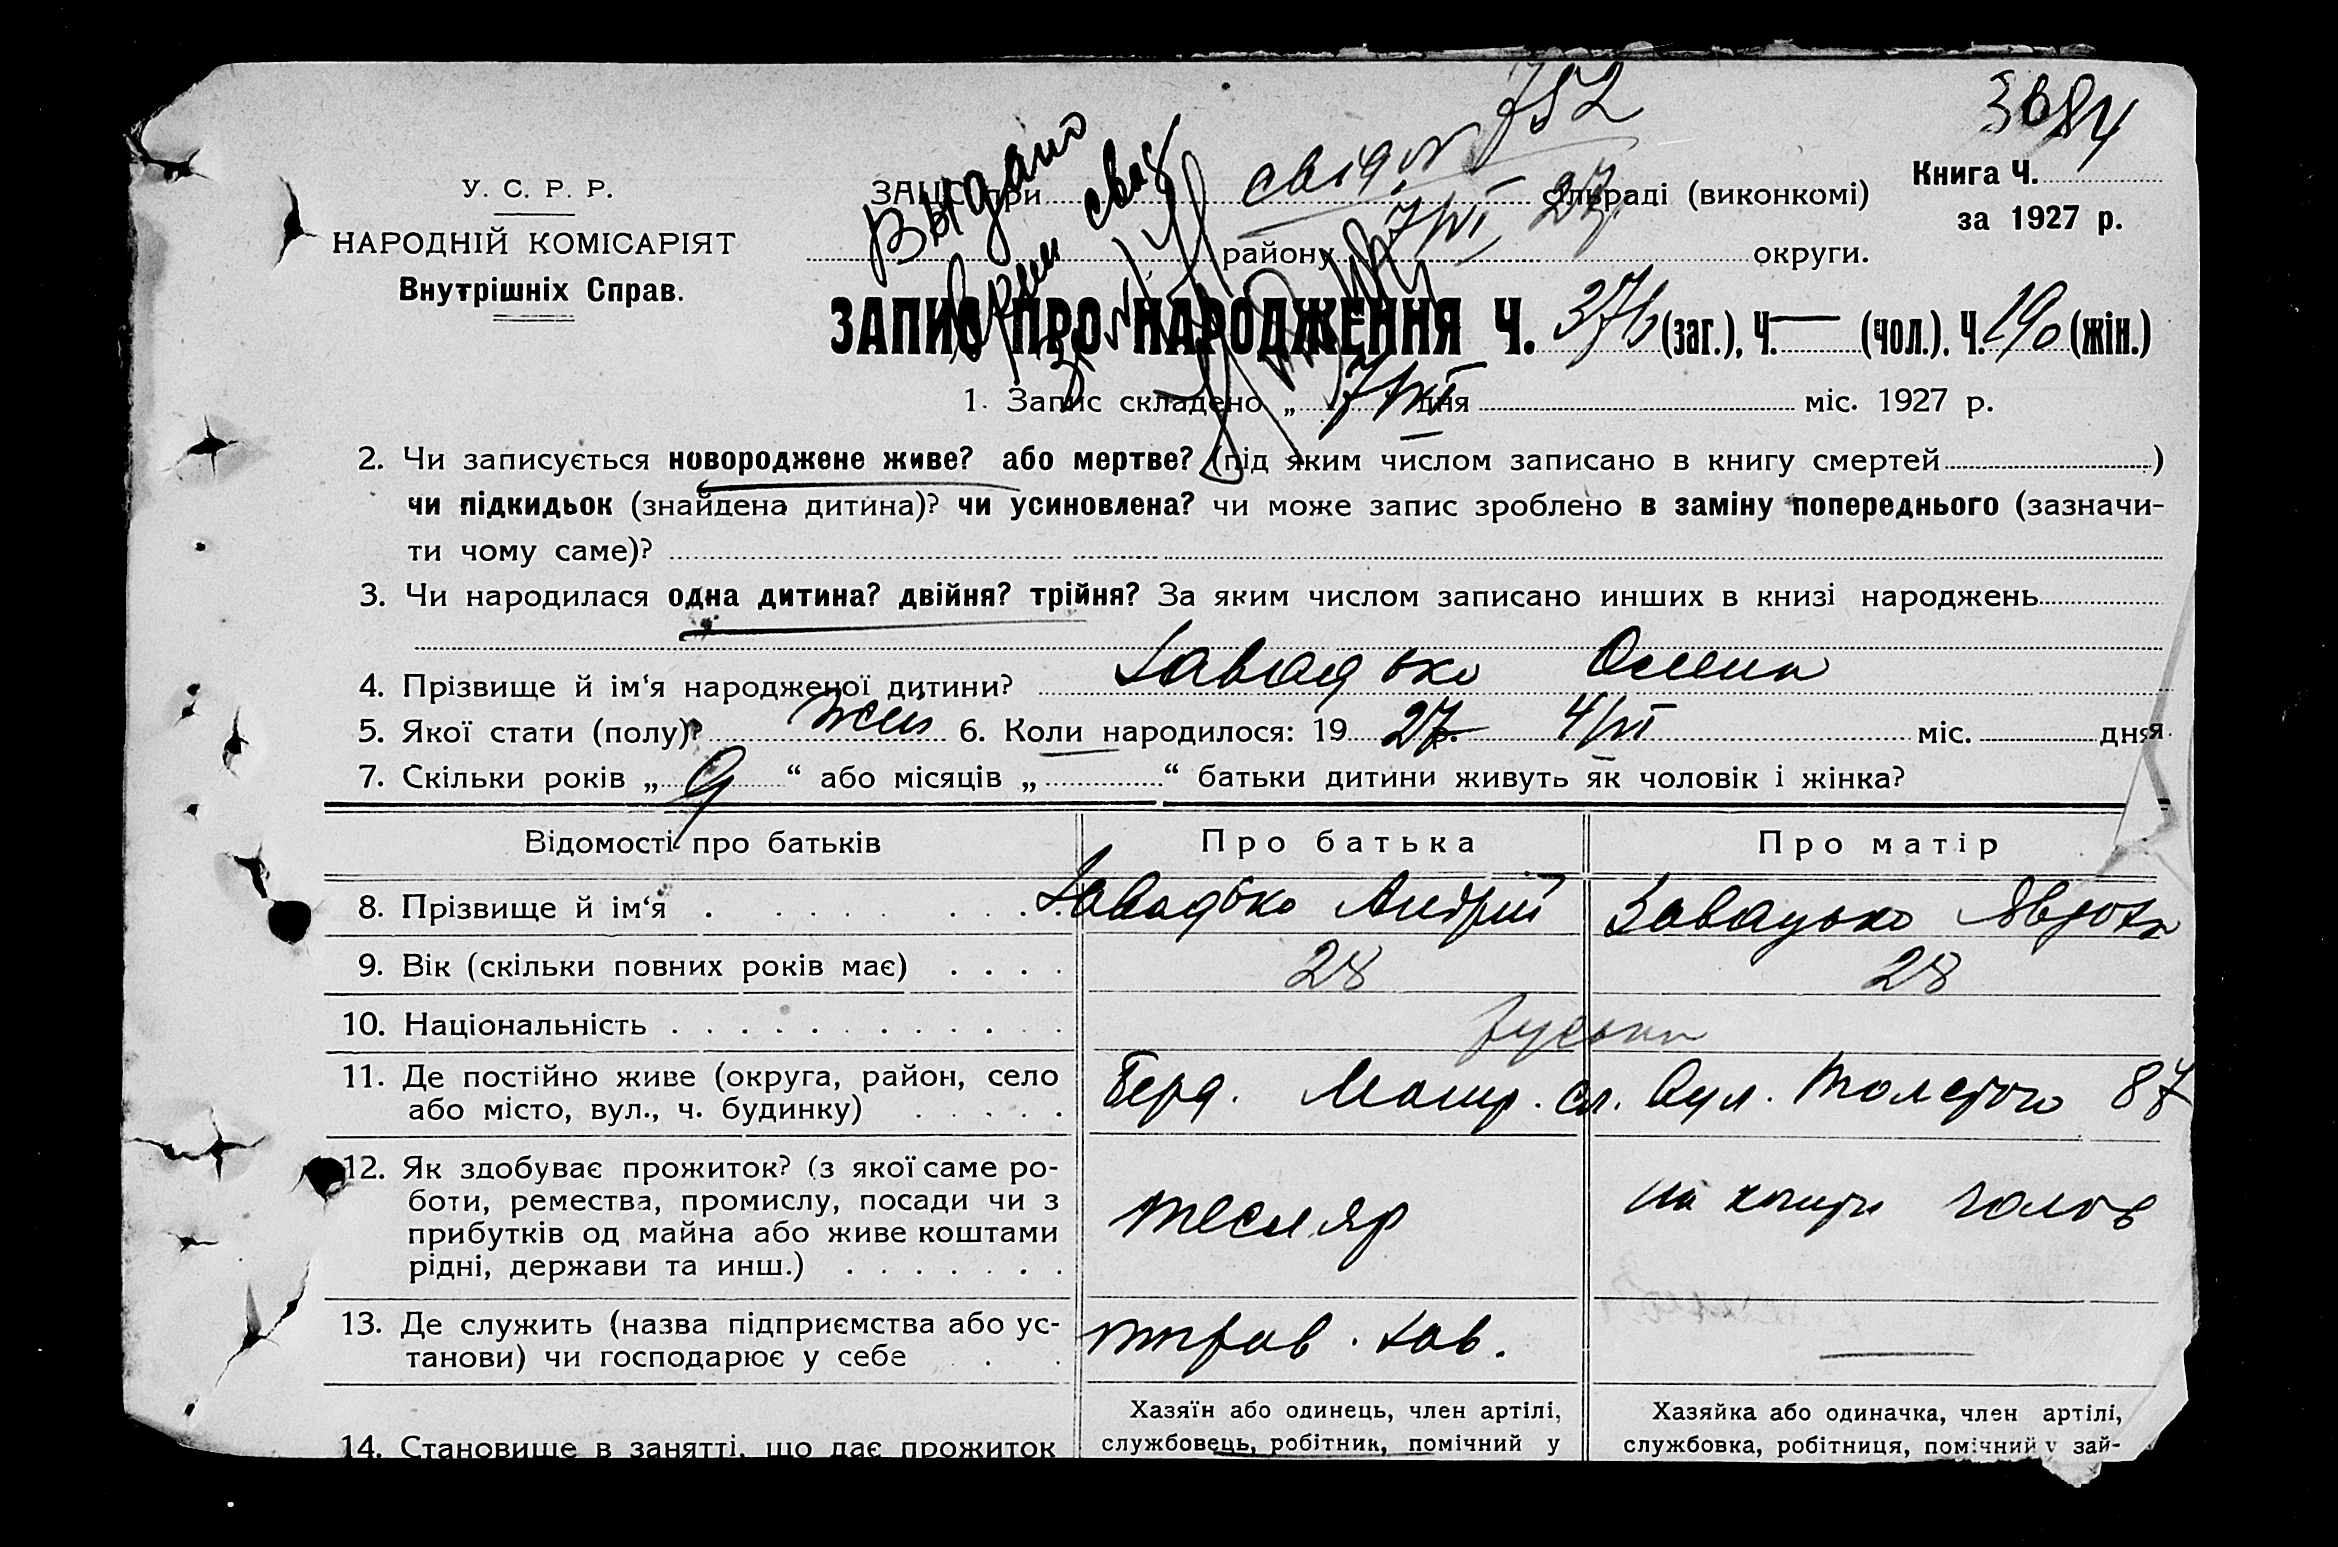 752
3684
Видано
свід. №
У. С. Р. Р.
ЗАЦС при сільраді (виконкомі)
Книга Ч.
за 1927 р.
НАРОДНІЙ КОМІСАРІЯТ
району 7/VI 27 округи.
Внутрішніх Справ.
ЗАПИС ПРО НАРОДЖЕННЯ Ч. 376 (заг.), Ч. — (чол.), Ч. 190 (жін.)
1. Запис складено „ 7/VI дня міс. 1927 р.
2. Чи записується новороджене живе? або мертве? (під яким числом записано в книгу смертей )
чи підкидьок (знайдена дитина)? чи усиновлена? чи може запис зроблено в заміну попереднього (зазначи-
ти чому саме)?
3. Чи народилася одна дитина? двійня? трійня? За яким числом записано инших в книзі народжень
4. Прізвище й ім‘я народженої дитини?
5. Якої стати (полу)? жін 6. Коли народилося: 19 27 р. 4/VI міс. дня
7. Скільки років „ 9 “ або місяців „ “ батьки дитини живуть як чоловік і жінка?
Відомості про батьків Про батька Про матір
8. Прізвище й ім‘я Завадько Андрій Завадько Явдоха
9. Вік (скільки повних років має) 28 28
10. Національність
11. Де постійно живе (округа, район, село
або місто, вул., ч. будинку)
Берд. сл. Вул. Толстого 87
12. Як здобуває прожиток? (з якої саме ро-
боти, ремества, промислу, посади чи з
прибутків од майна або живе коштами
рідні, держави та инш.)
тесляр
на кошти голов
13. Де служить (назва підприємства або ус-
танови) чи господарює у себе
зав. —
14. Становище в занятті, що дає прожиток
Хазяїн або одинець, член артілі,
службовець, робітник, помічний у
Хазяйка або одиначка, член артілі,
службовка, робітниця, помічний у зай-